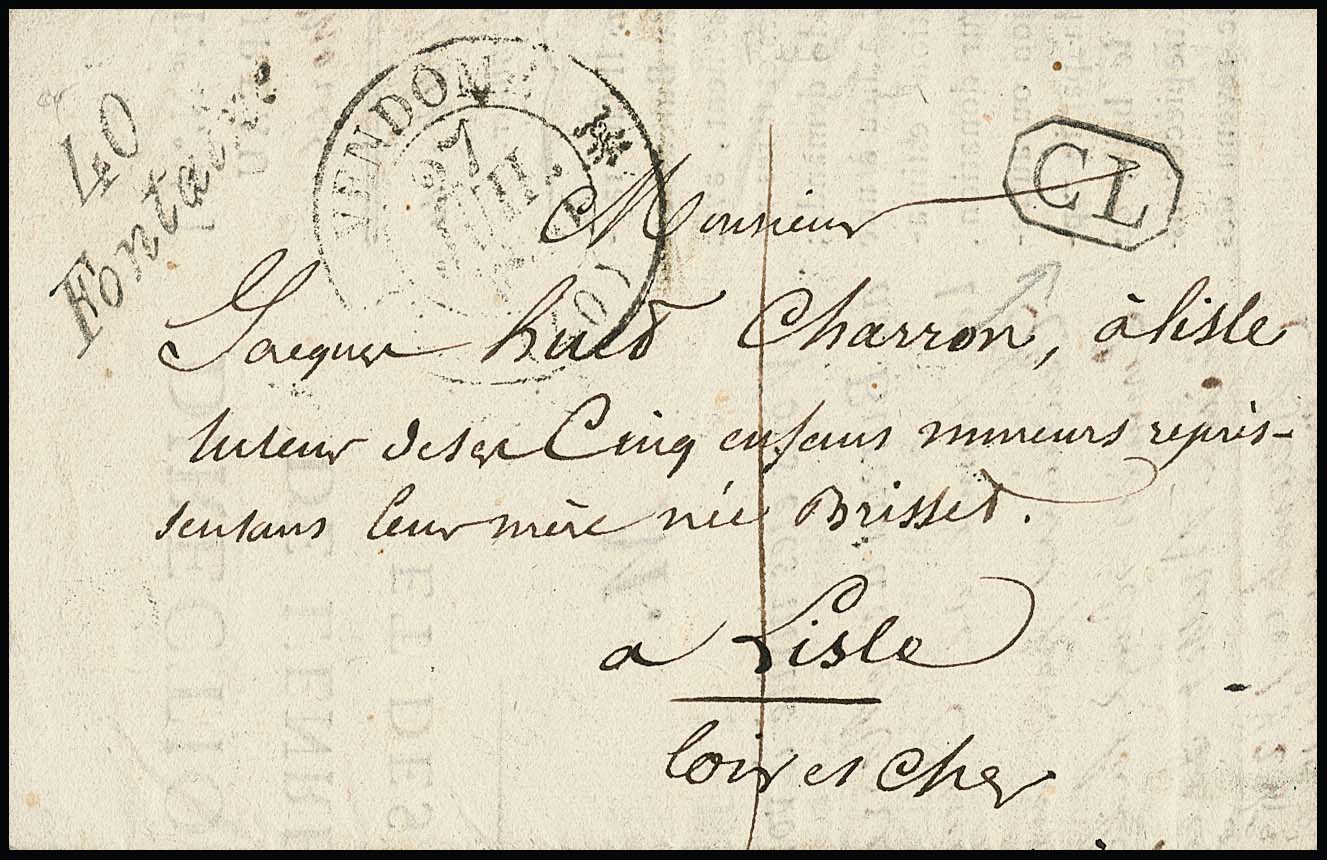 40
Fontaine
VENDOME
27
(40)
CL
Monsieur
Jacques huet Charron, à lisle
tuteur de ses Cinq enfans mineurs repré-
sentans leur mère née Brisset.
a Lisle
Loir et Cher